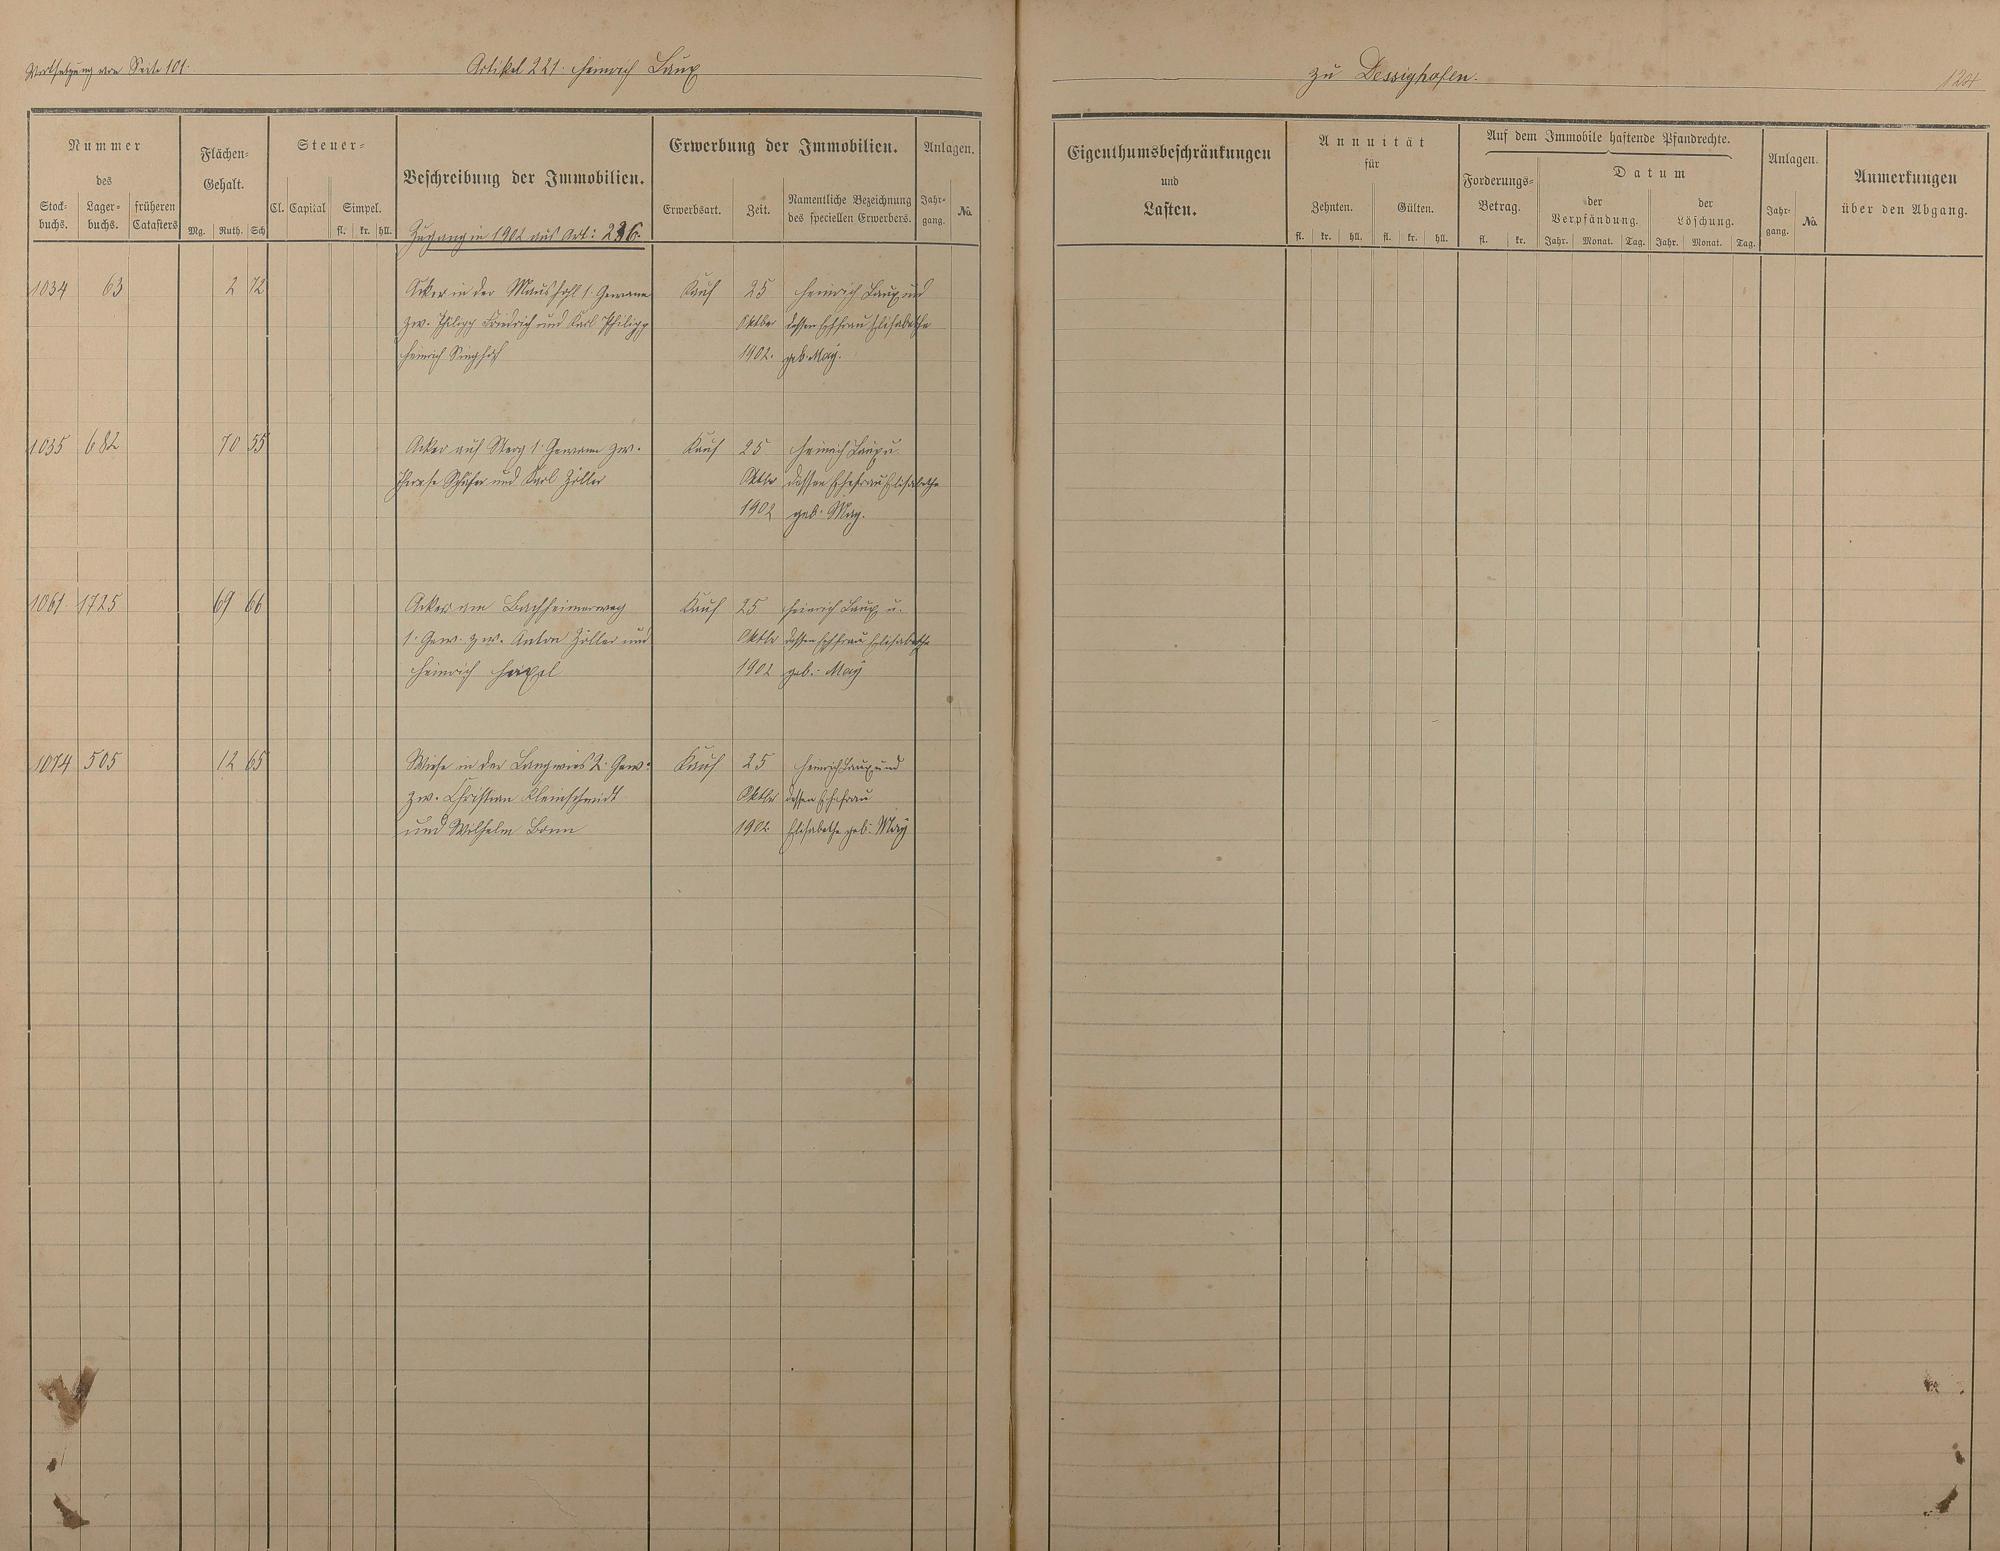 Fortsetzung von Seite 101.
Artikel 221. Heinrich Laux
zu Dessighofen.
124
Nummer
des
Stock- buchs.
Lager- buchs.
früheren Catasters
Flächen-
Gehalt.
Mg. Ruth. Sch
Steuer-
Cl. Capital Simpel.
fl. kr. hll.
Beschreibung der Immobilien.
Zugang in 1902 aus Art: 236.
Erwerbung der Immobilien.
Erwerbsart. Zeit.
Namentliche Bezeichnung
des speciellen Erwerbers.
Anlagen.
Jahr- gang. No.
Eigenthumsbeschränkungen
und
Lasten.
Annuität
für
Zehnten. Gülten.
fl. kr. hll. fl. kr. hll.
Auf dem Immobile haftende Pfandrechte.
Forderungs-
Betrag.
fl. kr.
Datum
der Verpfändung.
der Löschung.
Jahr. Monat. Tag. Jahr. Monat. Tag.
Anlagen.
Jahr- gang. No.
Anmerkungen
über den Abgang.
1034 63 2 72 Acker in der 1. Gewann Kauf 25 Heinrich Laux und
zw. Philipp Friedrich und Karl Philipp Oktbr dessen Ehefrau Elisabethe
Heinrich Singhof 1902. geb. May.
1035 682 70 55 Acker auf 1. Gewann zw. Kauf 25 Heinrich Laux u.
Schäfer und Karl Zöller Oktbr dessen Ehefrau Elisabethe
1902 geb. May.
1061 1725 69 66 Acker am Bachheimerweg Kauf 25 Heinrich Laux u.
1. Gew. zw. Anton Zöller und Oktbr dessen Ehefrau Elisabethe
Heinrich 1902 geb. May
1074 505 12 65 Wiese in der Langwies 2. Gew. Kauf 25 Heinrich Laux und
zw. Christian Kleinschmidt Oktbr dessen Ehefrau
und Wilhelm Bonn 1902 Elisabethe geb. May